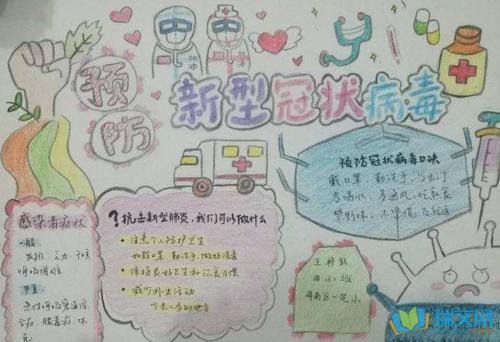 预防
新型冠状病毒
加油
预防冠状病毒口诀
戴口罩，勤洗手，少出门
多喝水，多通风，吃熟食
禁野味，不
感染者症状
一般：
发热、乏力、干咳
呼吸困难
严重：
急性呼吸窘迫综
合征、脓毒症、休
克
？抗击新型肺炎，我们可以做什么
注意个人防护卫生
如戴口罩、勤洗手、做好消毒
保持良好卫生和饮食习惯
减少外出活动
少去人多的地方
王梓
班
小